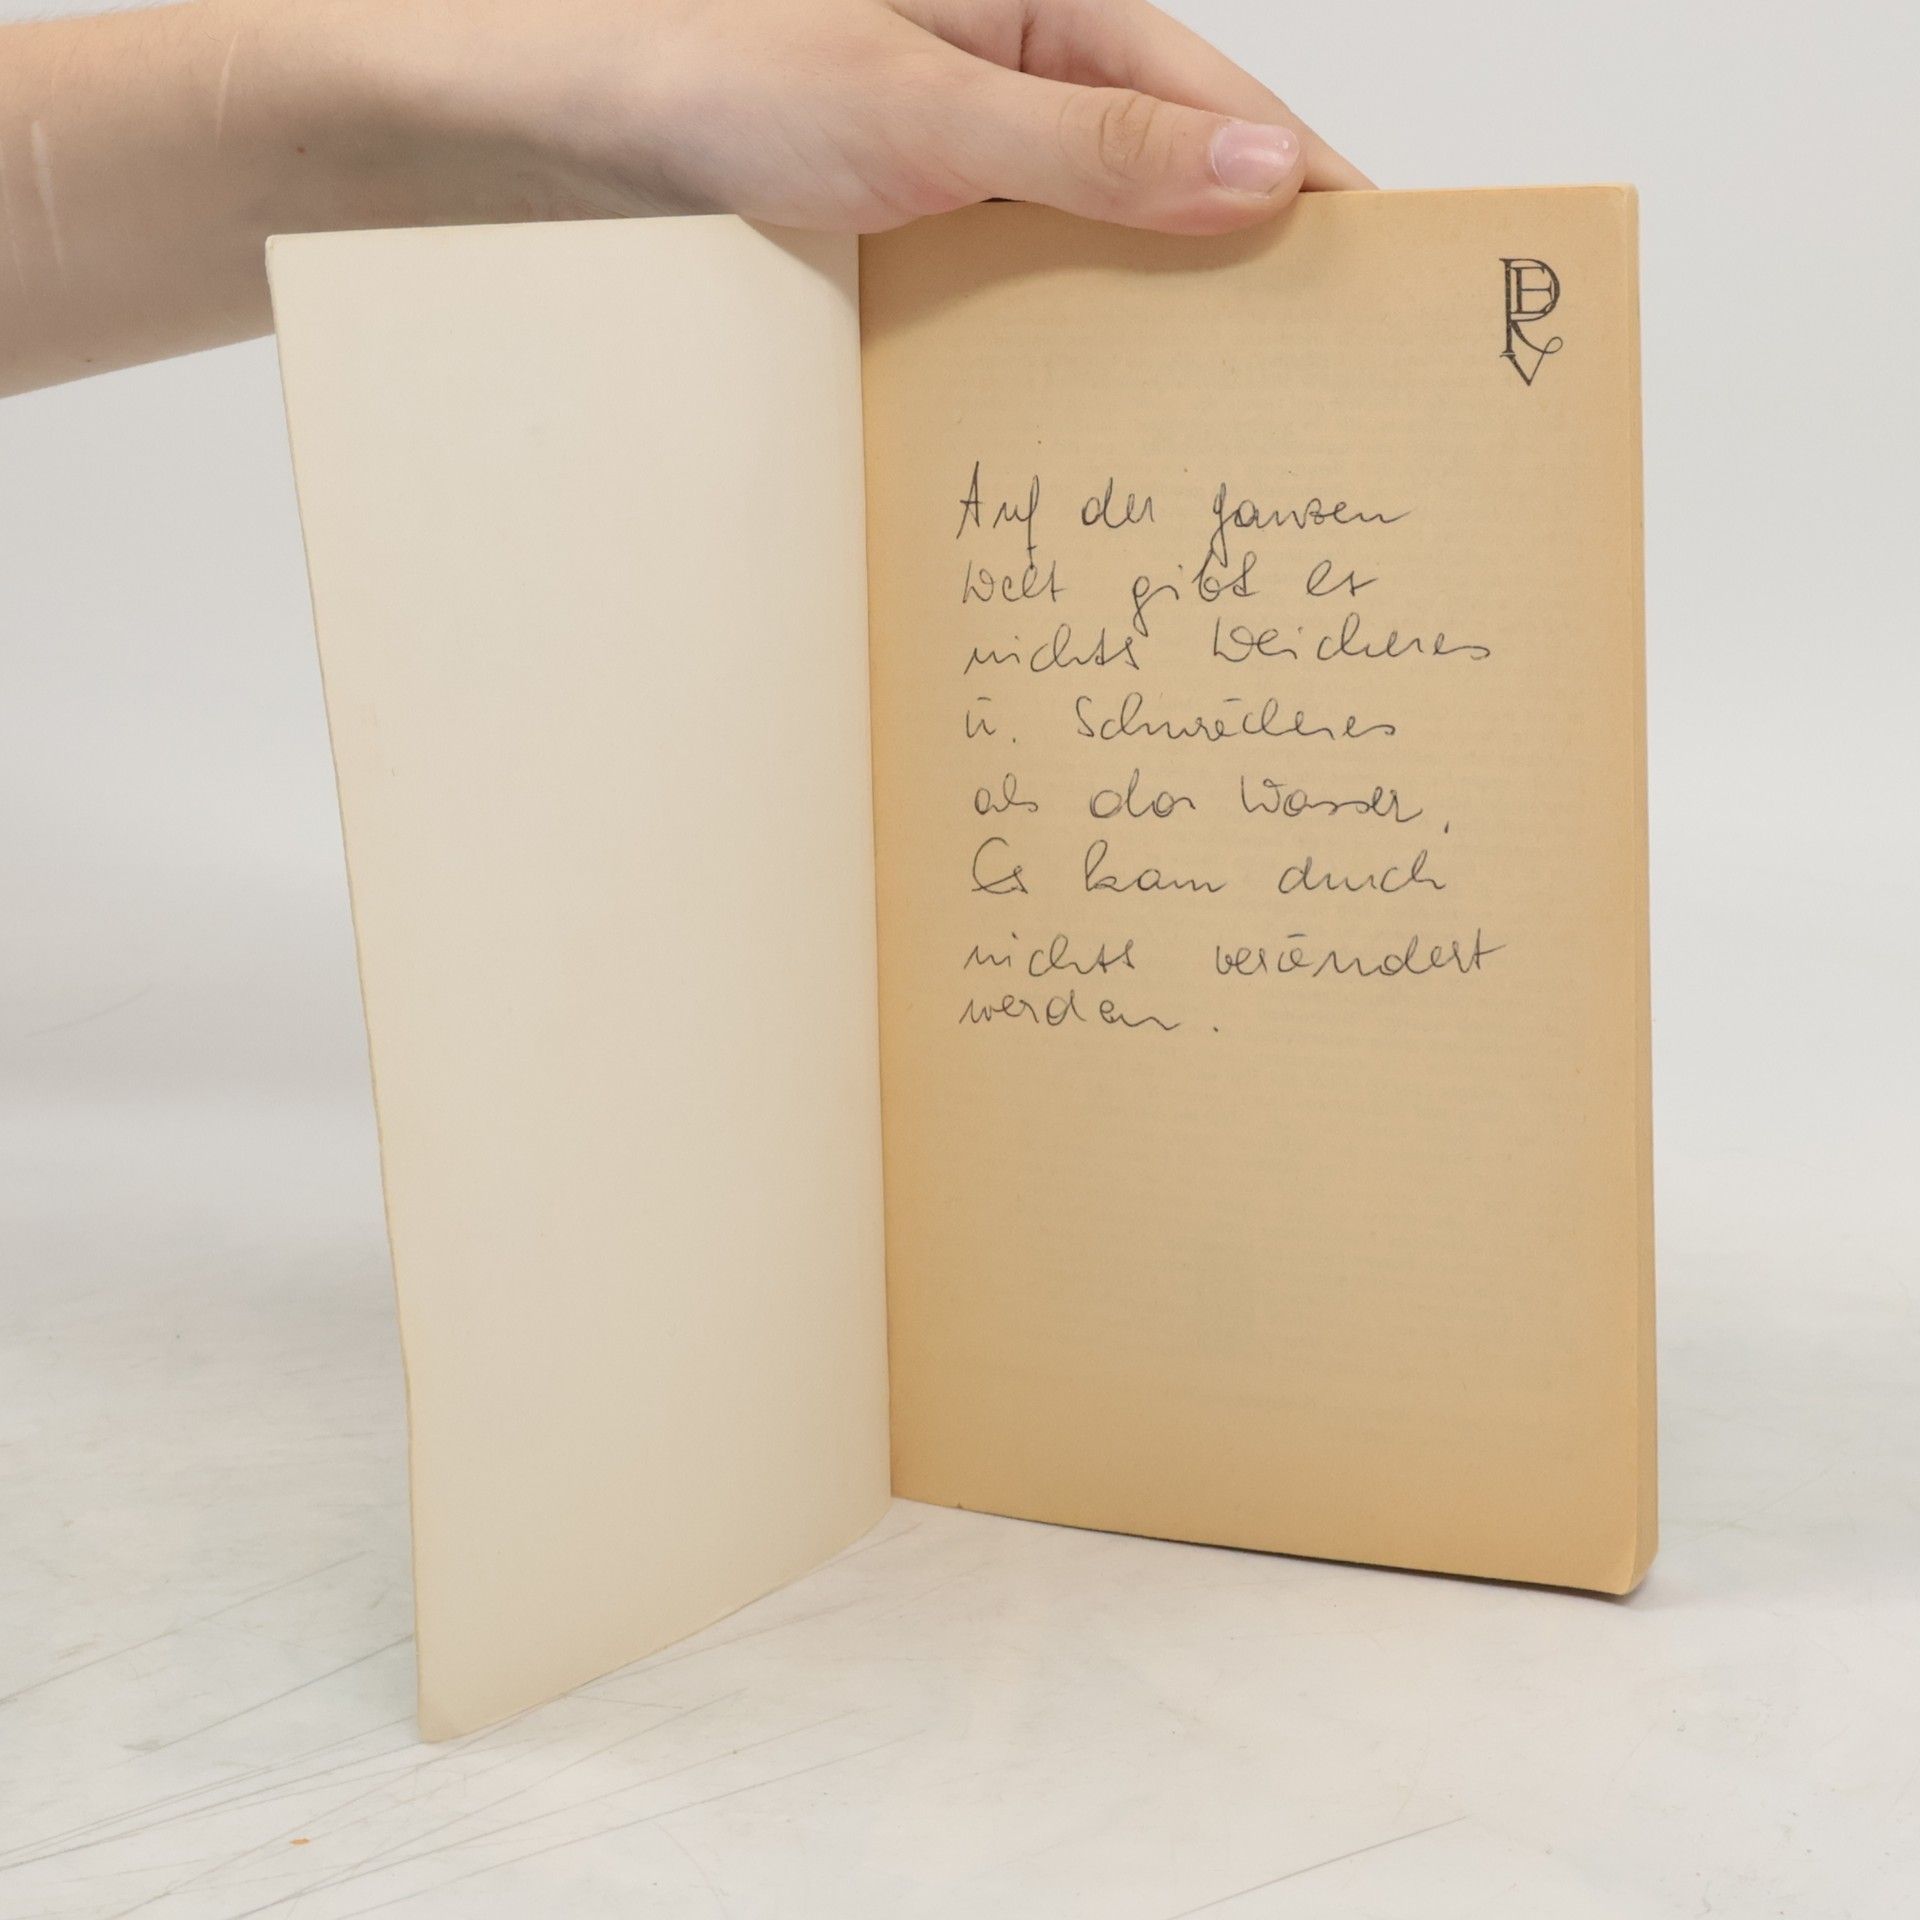 DERV
Auf der ganzen
Welt gibt es
nichts Weicheres
ū. Schwächeres
als das Wasser.
Es kann durch
nichts verändert
werden.